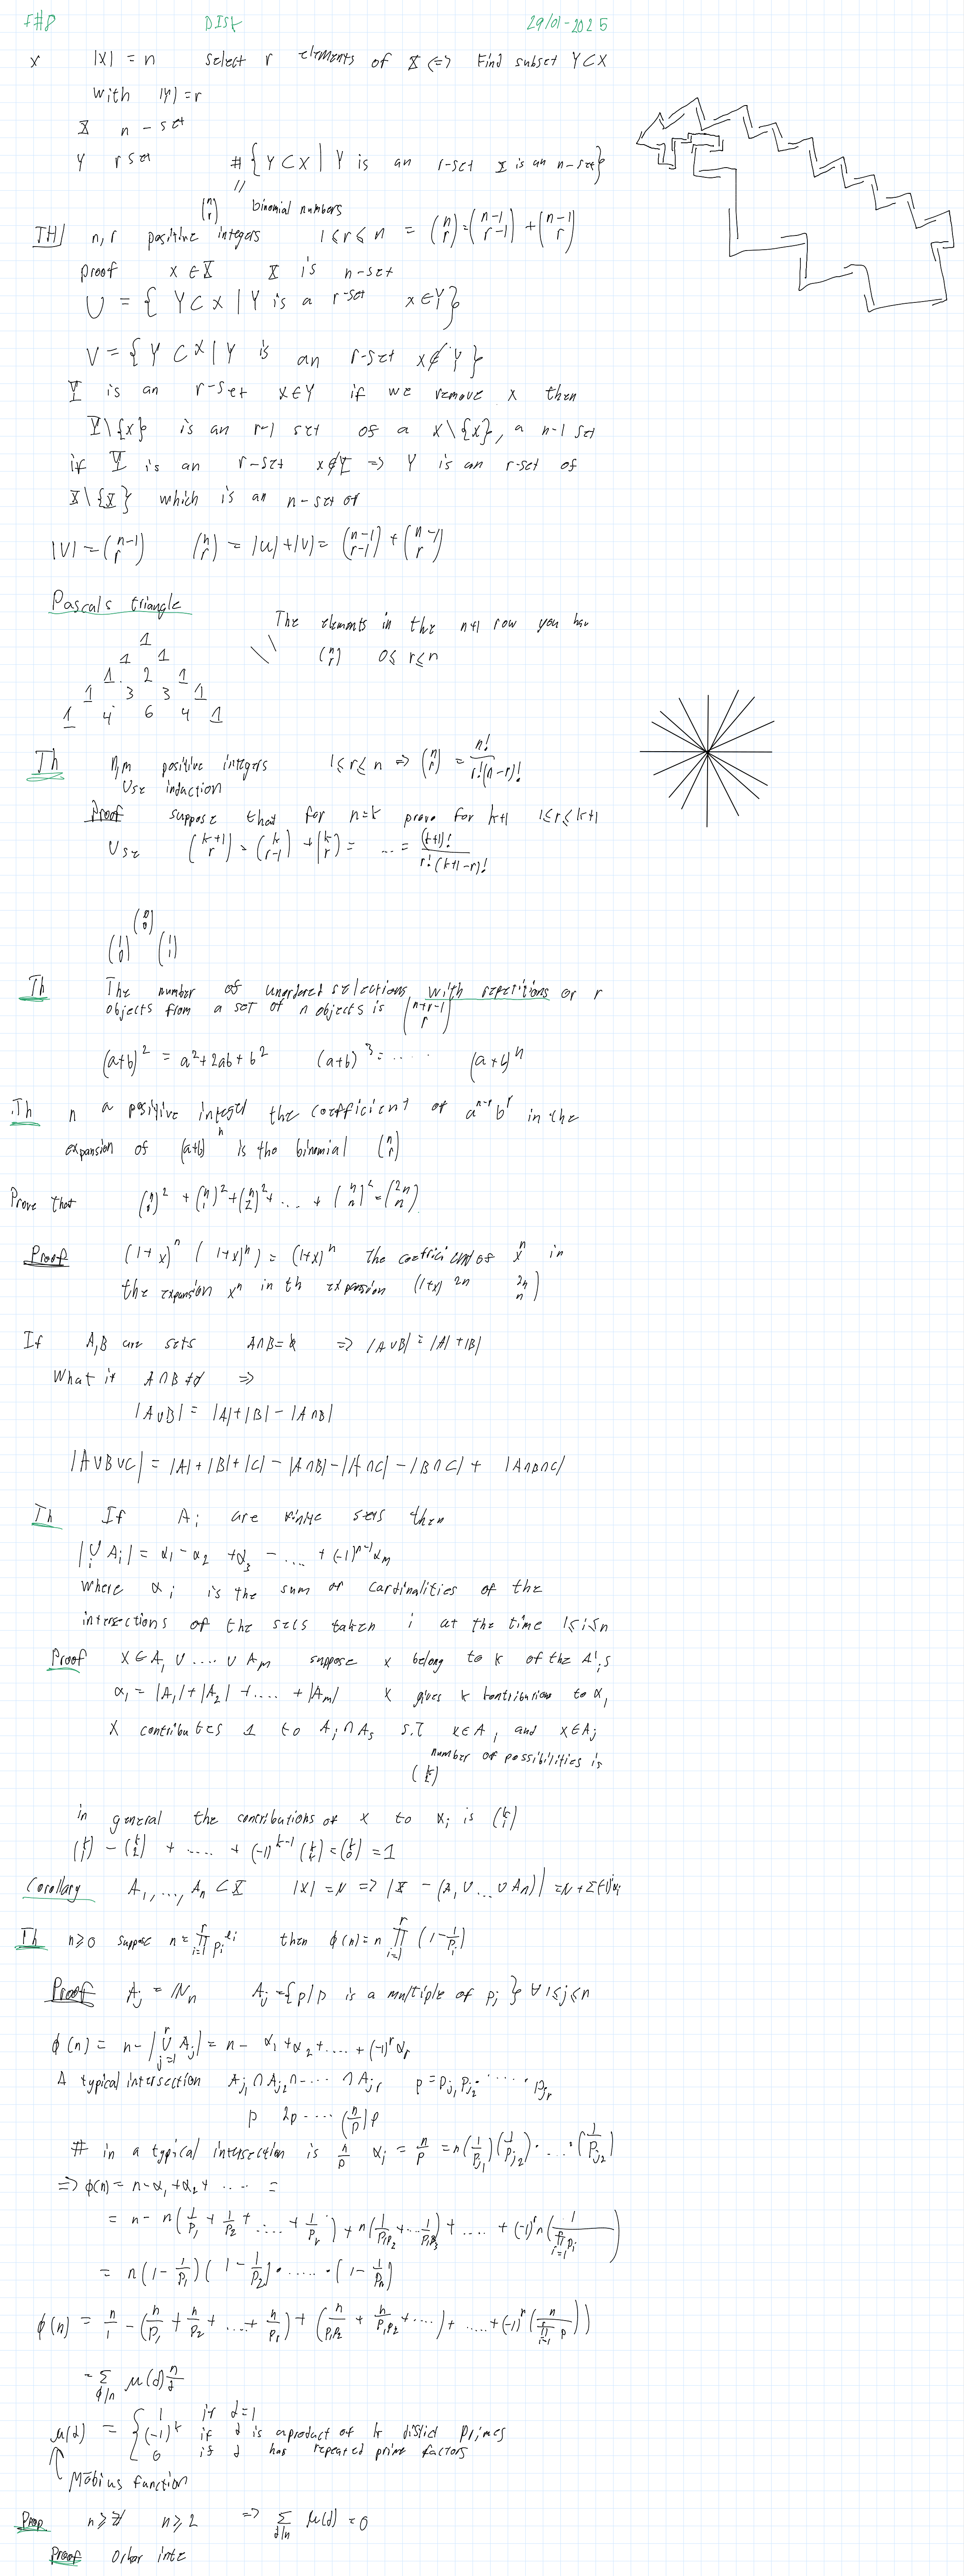 F#8 DISK 29/01-2025
x |X| = n select r elements of X <=> Find subset Y⊂X
with |Y| = r
X n-set
Y r set #{Y⊂X | Y is an r-set X is an n-set}
//
(n r) binomial numbers
TH/ n,r positive integers 1≤r≤n = (n r) = (n-1 r-1) + (n-1 r)
proof x∈X X is n-set
U = { Y⊂X | Y is a r-set x∈Y}
V = {Y⊂X | Y is an r-set x∉Y}
Y is an r-set x∈Y if we remove x then
Y\{x} is an r-1 set of a x\{x}, a n-1 set
if Y is an r-set x∉Y => Y is an r-set of
X\{X} which is an n-set of
|V| = (n-1 r) (n r) = |U|+|V| = (n-1 r-1) + (n-1 r)
Pascals triangle
The elements in the n+1 row you hav
1
1 1
(n r) 0≤r≤n
1 2 1
1 3 3 1
1 4 6 4 1
Th n,m positive integers 1≤r≤n => (n r) = n!/r!(n-r)!
Use induction
Proof suppose that for n=k prove for k+1 1≤r≤k+1
Use (k+1 r) = (k r-1) + (k r) = ... = (k+1)!/r!(k+1-r)!
(0 0)
(1 0) (1 1)
Th The number of unordered selections with repetitions of r
objects from a set of n objects is (n+r-1 r)
(a+b)² = a²+2ab+b² (a+b)³ = ..... (a+b)ⁿ
Th n a positive integer the coefficient of aⁿ⁻ʳbʳ in the
expansion of (a+b)ⁿ is the binomial (n r)
Prove that (n 0)² + (n 1)² + (n 2)² + ... + (n n)² = (2n n)
Proof (1+x)ⁿ (1+x)ⁿ) = (1+x)ⁿ The coefficient of xⁿ in
the expansion xⁿ in th expansion (1+x) 2n (2n n)
If A,B are sets A∩B=∅ => |A∪B| = |A|+|B|
What if A∩B≠∅ =>
|A∪B| = |A|+|B| - |A∩B|
|A∪B∪C| = |A|+|B|+|C| - |A∩B| - |A∩C| - |B∩C| + |A∩B∩C|
Th If Ai are finite sets then
|∪i Ai| = α1 - α2 + α3 - .... + (-1)ⁿ⁻¹αm
where αi is the sum of cardinalities of the
intersections of the sets taken i at the time 1≤i≤n
Proof x∈A1 ∪ .... ∪ Am suppose x belong to k of the A'is
α1 = |A1|+|A2| + .... + |Am| x gives k contribution to α1
X contributes 1 to Ai∩As s.t x∈Ai and x∈Aj
number of possibilities is
(k 2)
in general the contributions of x to αi is (k i)
(k 1) - (k 2) + ..... + (-1)ᵏ⁻¹ (k k) = (k 0) = 1
Corollary A1,...,An ⊂ X |X| = N => |X - (A1∪...∪An)| = N + Σ(-1)ⁱαi
Th n≥0 suppose n = ∏ᵢ₌₁ʳ pi^ei then φ(n) = n ∏ᵢ₌₁ʳ (1 - 1/pi)
Proof Aj = ℕn Aj = {p/p is a multiple of pj} ∀ 1≤j≤n
φ(n) = n - |∪ⱼ₌₁ʳ Aj| = n - α1 + α2 + .... + (-1)ʳαr
A typical intersection Aj1 ∩ Aj2 ∩ ---- ∩ Ajr p = pj1 pj2 ..... pjr
p 2p ---- (n/p)p
# in a typical intersection is n/p αi = n/p = n(1/pj1)(1/pj2)· ... ·(1/pj2)
=> φ(n) = n - α1 + α2 + ..... =
= n - n(1/p1 + 1/p2 + ..... + 1/pr) + n(1/p1p2 + ... 1/p1p3) + ..... + (-1)ʳn(1/∏ᵢ₌₁ pi)
= n(1 - 1/p1)(1 - 1/p2)· ..... ·(1 - 1/pn)
φ(n) = n/1 - (n/p1 + n/p2 + ... + n/pr) + (n/p1p2 + n/p1p2 + ....) + ..... + (-1)ʳ(n/∏ᵢ₌₁ p))
= Σd/n μ(d) n/d
μ(d) = { 1 if d=1
(-1)ᵏ if d is a product of k distict primes
0 if d has repeated prime factors
Möbius function
Prop n≥2 n≥2 => Σd/n μ(d) = 0
Proof